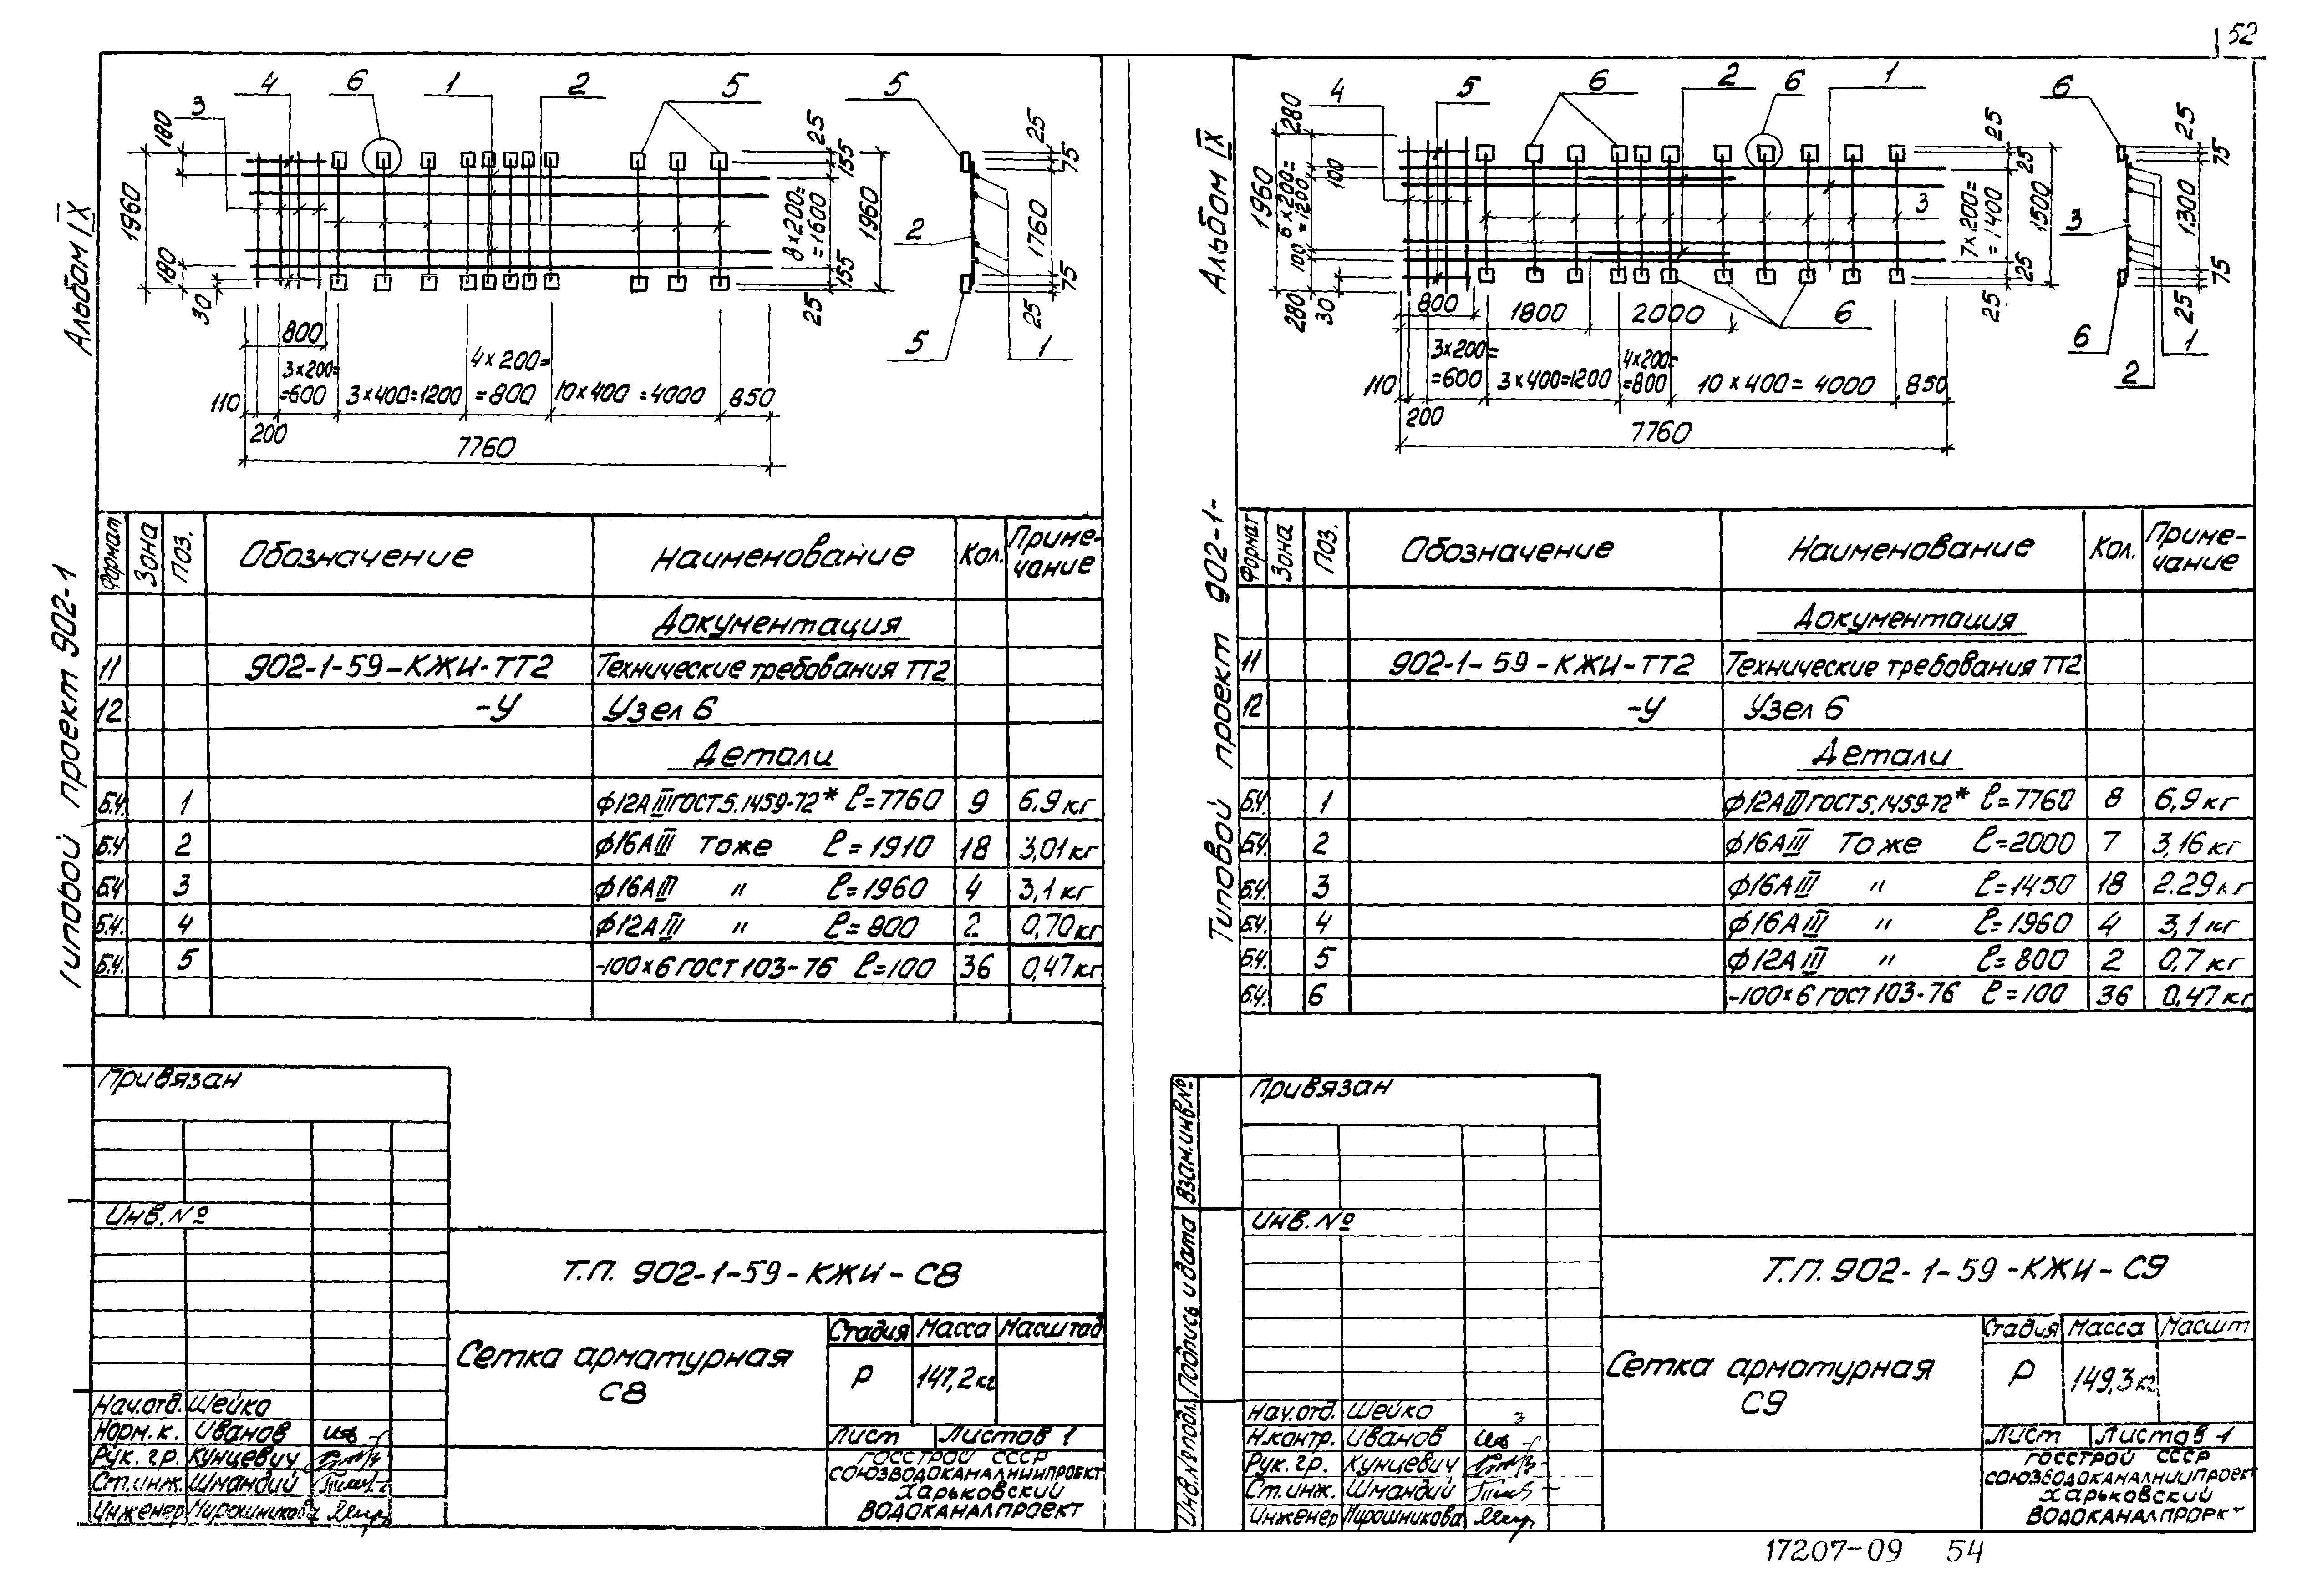 52
Альбом IX
Типовой проект 902-1
4 6 1 2 5 5
3
180
1960
180
30
25
155
8×200=
=1600
1960
155
25
25
75
2
1760
75
25
5 1
800
3×200=
=600
3×400=1200
4×200=
=800
10×400=4000
850
110
200
7760
Формат Зона Поз. Обозначение Наименование Кол. Приме-
чание
Документация
11 902-1-59-КЖИ-ТТ2 Технические требования ТТ2
12 -У Узел 6
Детали
Б.Ч. 1 ф12АIII ГОСТ 5.1459-72* ℓ=7760 9 6.9кг
Б.Ч 2 ф16АIII То же ℓ=1910 18 3,01кг
Б.Ч 3 ф16АIII " ℓ=1960 4 3,1кг
Б.Ч. 4 ф12АIII " ℓ=800 2 0,70кг
Б.Ч. 5 -100×6 ГОСТ 103-76 ℓ=100 36 0,47кг
Привязан
Инв.№
Т.П. 902-1-59-КЖИ-С8
Сетка арматурная
С8
Стадия Масса Масштаб
Р 147,2кг
Лист Листов 1
Госстрой СССР
Союзводоканалниипроект
Харьковский
Водоканалпроект
Нач.отд. Шейко
Норм.к. Иванов
Рук.гр. Кунцевич
Ст.инж. Шмандий
Инженер Мирошникова
Альбом IX
Типовой проект 902-1-
4 5 6 2 6 1 6
280
1960
6×200=
=1200
100
100
280
30
3
25
25
7×200=
=1400
1500
25
25
25
75
3
1300
75
25
6 1
2
800
1800
2000
6
3×200=
=600
3×400=1200
4×200=
=800
10×400=4000
850
110
200
7760
Формат Зона Поз. Обозначение Наименование Кол. Приме-
чание
Документация
11 902-1-59-КЖИ-ТТ2 Технические требования ТТ2
12 -У Узел 6
Детали
Б.Ч. 1 ф12АIII ГОСТ 5.1459-72* ℓ=7760 8 6,9кг
Б.Ч. 2 ф16АIII То же ℓ=2000 7 3,16кг
Б.Ч. 3 ф16АIII " ℓ=1450 18 2.29кг
Б.Ч. 4 ф16АIII " ℓ=1960 4 3,1кг
Б.Ч. 5 ф12АIII " ℓ=800 2 0,7кг
Б.Ч. 6 -100×6 ГОСТ 103-76 ℓ=100 36 0,47кг
Привязан
Инв.№
Взам.инв.№
Подпись и дата
Инв.№ подл.
Т.П. 902-1-59-КЖИ-С9
Сетка арматурная
С9
Стадия Масса Масшт
Р 149,3кг
Лист Листов 1
Госстрой СССР
Союзводоканалниипроект
Харьковский
Водоканалпроркт
Нач.отд. Шейко
Н.контр. Иванов
Рук.гр. Кунцевич
Ст.инж. Шмандий
Инженер Мирошникова
17207-09 54